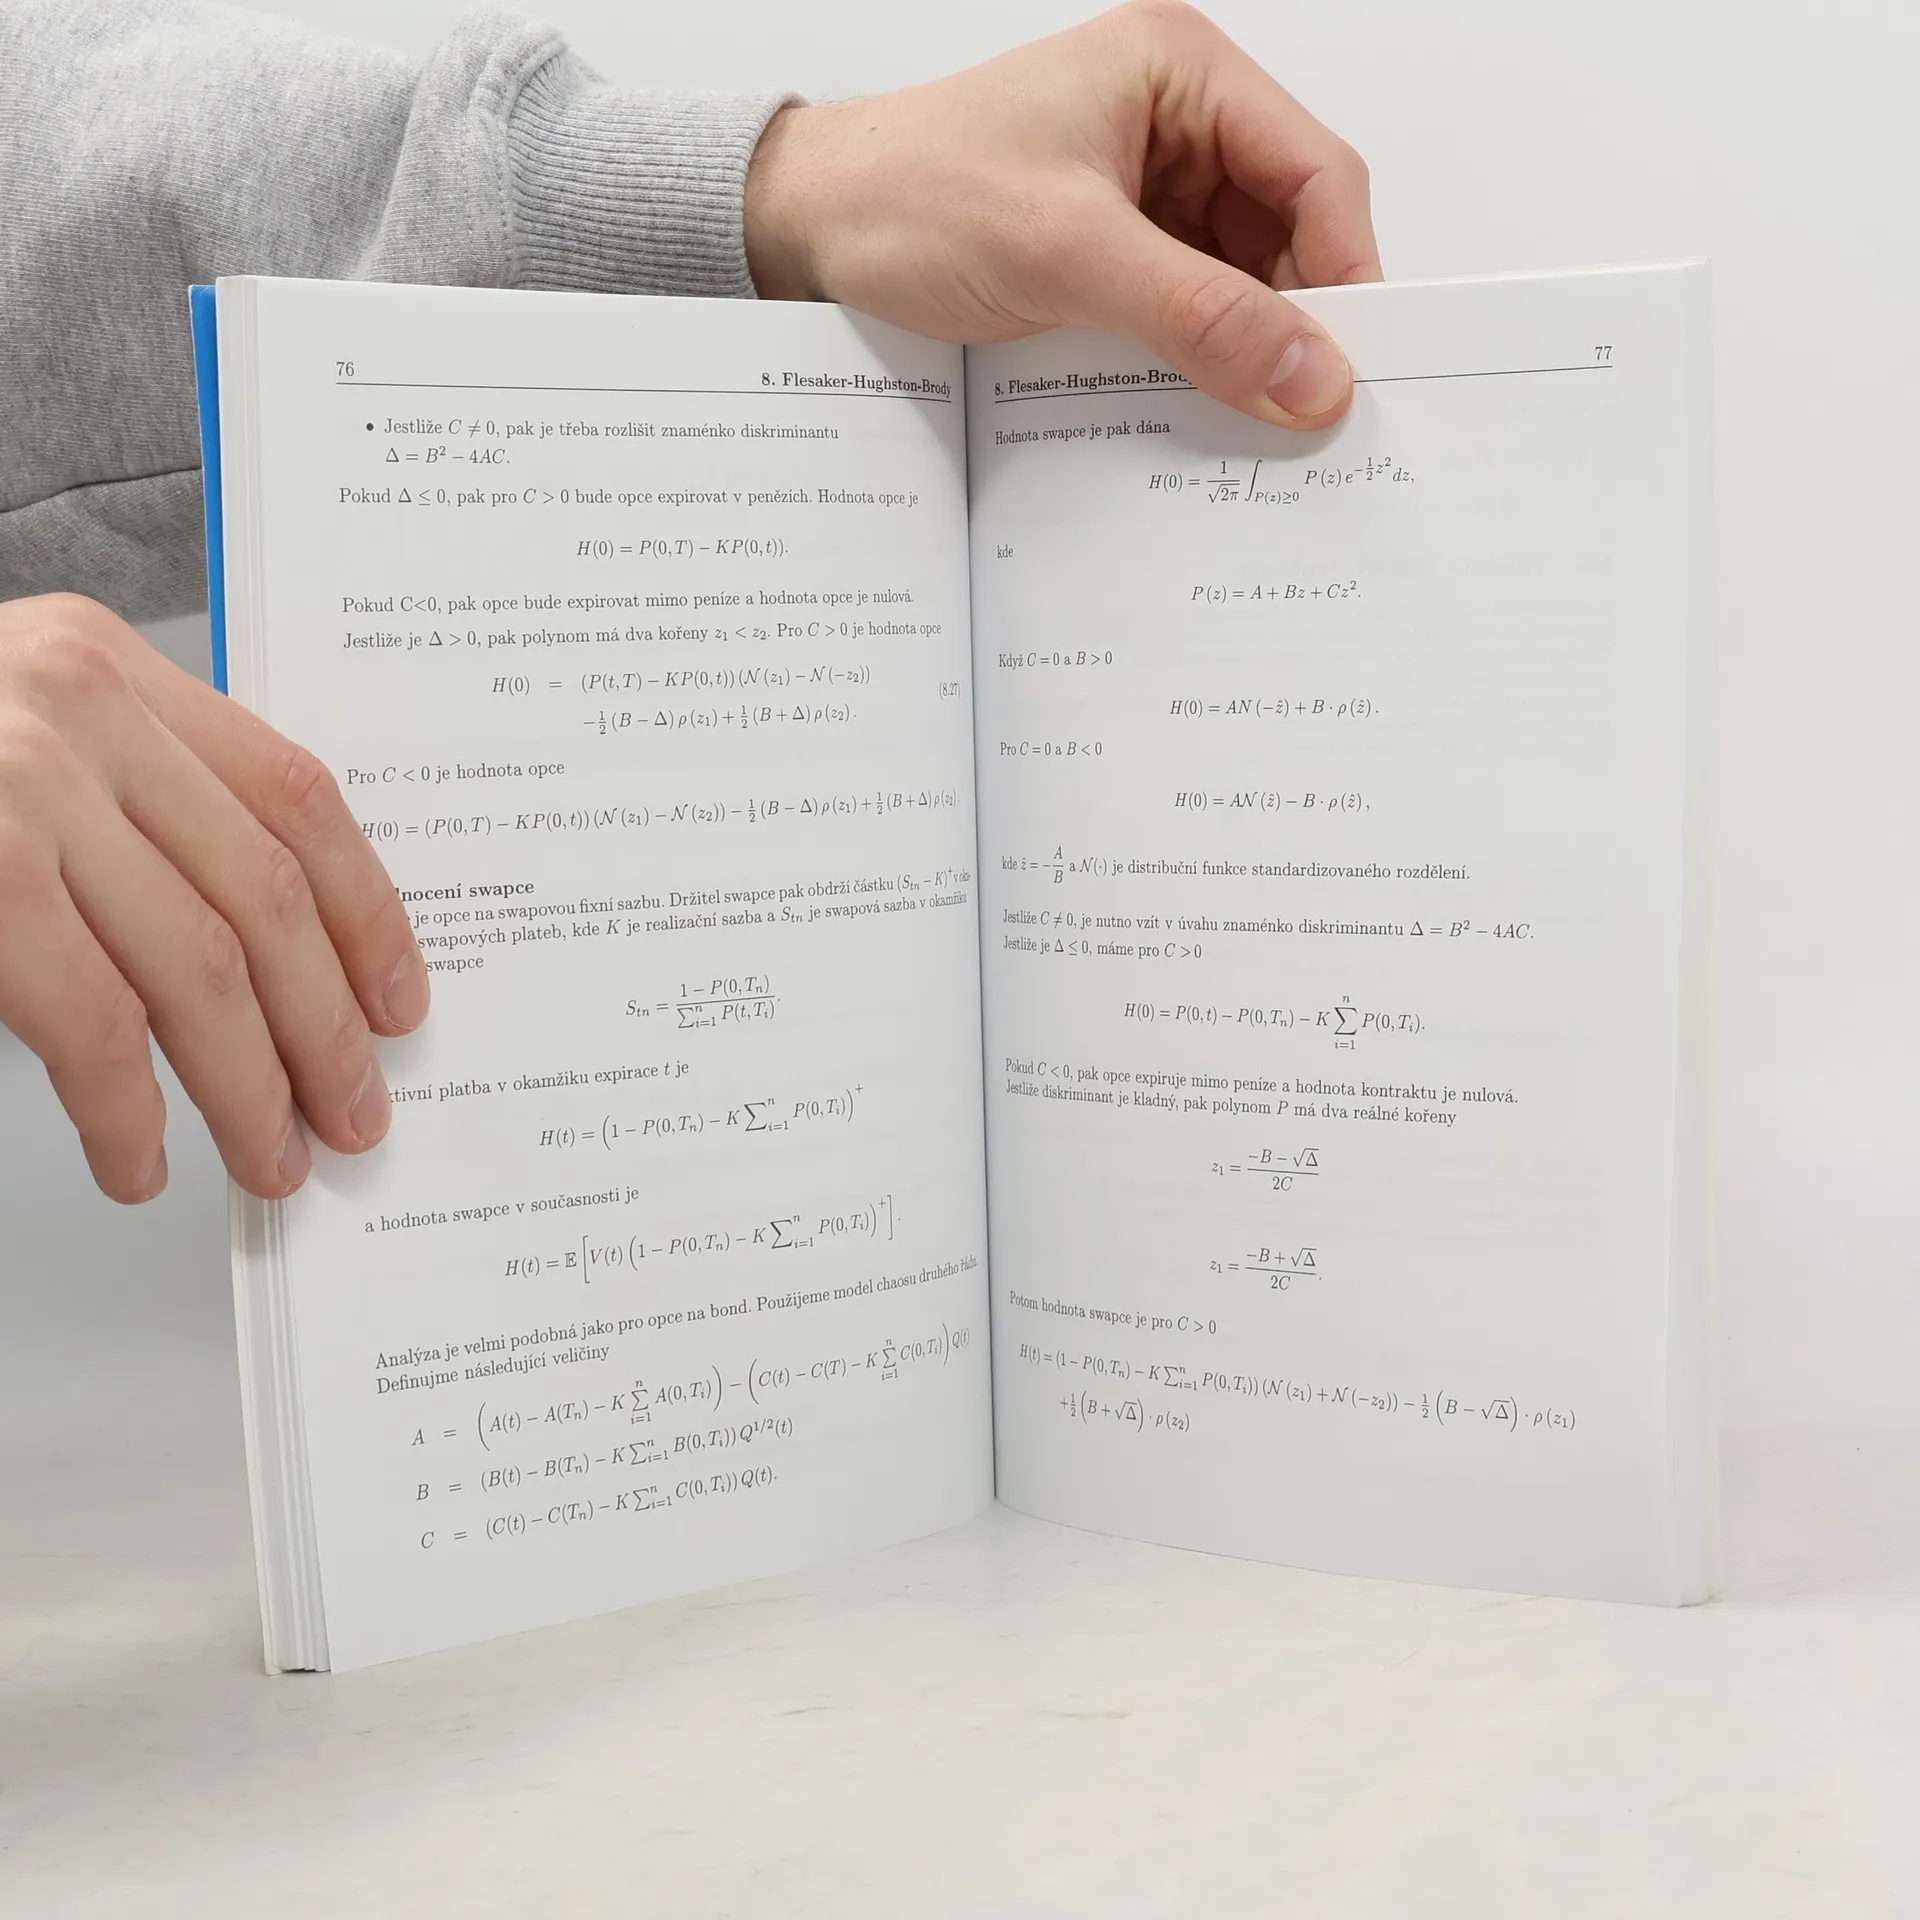 76
8. Flesaker-Hughston-Brody
• Jestliže C ≠ 0, pak je třeba rozlišit znaménko diskriminantu
Δ = B² − 4AC.
Pokud Δ ≤ 0, pak pro C > 0 bude opce expirovat v penězích. Hodnota opce je
H(0) = P(0,T) − KP(0,t)).
Pokud C<0, pak opce bude expirovat mimo peníze a hodnota opce je nulová.
Jestliže je Δ > 0, pak polynom má dva kořeny z₁ < z₂. Pro C > 0 je hodnota opce
H(0) = (P(t,T) − KP(0,t)) (𝒩(z₁) − 𝒩(−z₂))
(8.27)
−½ (B − Δ) ρ(z₁) + ½ (B + Δ) ρ(z₂).
Pro C < 0 je hodnota opce
H(0) = (P(0,T) − KP(0,t)) (𝒩(z₁) − 𝒩(z₂)) − ½ (B − Δ) ρ(z₁) + ½ (B + Δ) ρ(z₂).
swapce
je opce na swapovou fixní sazbu. Držitel swapce pak obdrží částku (Sₜₙ − K)⁺ v oka-
swapových plateb, kde K je realizační sazba a Sₜₙ je swapová sazba v okamžiku
swapce
Sₜₙ = (1 − P(0,Tₙ)) / (∑ᵢ₌₁ⁿ P(t,Tᵢ)).
platba v okamžiku expirace t je
H(t) = (1 − P(0,Tₙ) − K ∑ᵢ₌₁ⁿ P(0,Tᵢ))⁺
a hodnota swapce v současnosti je
H(t) = 𝔼 [V(t) (1 − P(0,Tₙ) − K ∑ᵢ₌₁ⁿ P(0,Tᵢ))⁺].
Analýza je velmi podobná jako pro opce na bond. Použijeme model chaosu druhého řádu.
Definujme následující veličiny
A = (A(t) − A(Tₙ) − K ∑ᵢ₌₁ⁿ A(0,Tᵢ)) − (C(t) − C(T) − K ∑ᵢ₌₁ⁿ C(0,Tᵢ)) Q(t)
B = (B(t) − B(Tₙ) − K ∑ᵢ₌₁ⁿ B(0,Tᵢ)) Q^{1/2}(t)
C = (C(t) − C(Tₙ) − K ∑ᵢ₌₁ⁿ C(0,Tᵢ)) Q(t).
77
8. Flesaker-Hughston-
Hodnota swapce je pak dána
H(0) = 1/√(2π) ∫_{P(z)≥0} P(z) e^{−½z²} dz,
kde
P(z) = A + Bz + Cz².
Když C = 0 a B > 0
H(0) = AN(−ẑ) + B · ρ(ẑ).
Pro C = 0 a B < 0
H(0) = A𝒩(ẑ) − B · ρ(ẑ),
kde ẑ = −A/B a 𝒩(·) je distribuční funkce standardizovaného rozdělení.
Jestliže C ≠ 0, je nutno vzít v úvahu znaménko diskriminantu Δ = B² − 4AC.
Jestliže je Δ ≤ 0, máme pro C > 0
H(0) = P(0,t) − P(0,Tₙ) − K ∑ᵢ₌₁ⁿ P(0,Tᵢ).
Pokud C < 0, pak opce expiruje mimo peníze a hodnota kontraktu je nulová.
Jestliže diskriminant je kladný, pak polynom P má dva reálné kořeny
z₁ = (−B − √Δ) / 2C
z₁ = (−B + √Δ) / 2C.
Potom hodnota swapce je pro C > 0
H(t) = (1 − P(0,Tₙ) − K ∑ᵢ₌₁ⁿ P(0,Tᵢ)) (𝒩(z₁) + 𝒩(−z₂)) − ½ (B − √Δ) · ρ(z₁)
+½ (B + √Δ) · ρ(z₂)